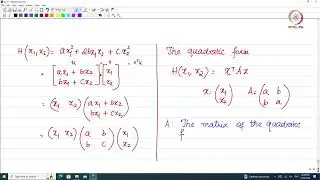 H(x₁,x₂) = ax₁² + 2bx₁x₂ + cx₂²
= [ax₁ + bx₂ bx₁ + cx₂] · [x₁ x₂] = vᵀx
= (x₁ x₂) (ax₁ + bx₂ bx₁ + cx₂)
= (x₁ x₂) (a b b c) (x₁ x₂)
The quadratic form
H(x₁, x₂) = xᵀAx
x: (x₁ x₂) A = (a b b a)
A: The matrix of the quadratic
f